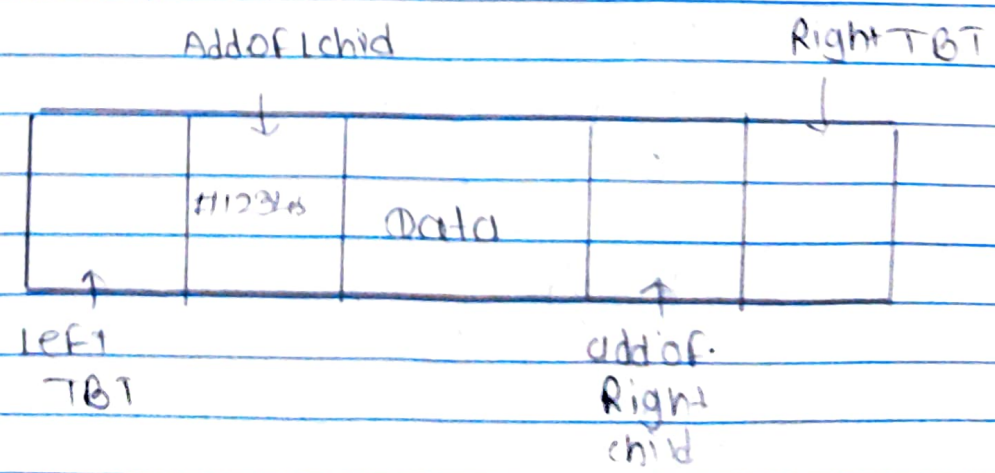 Add OF Lchid
Right TBT
Data
Left
TBT
add of.
Right
child